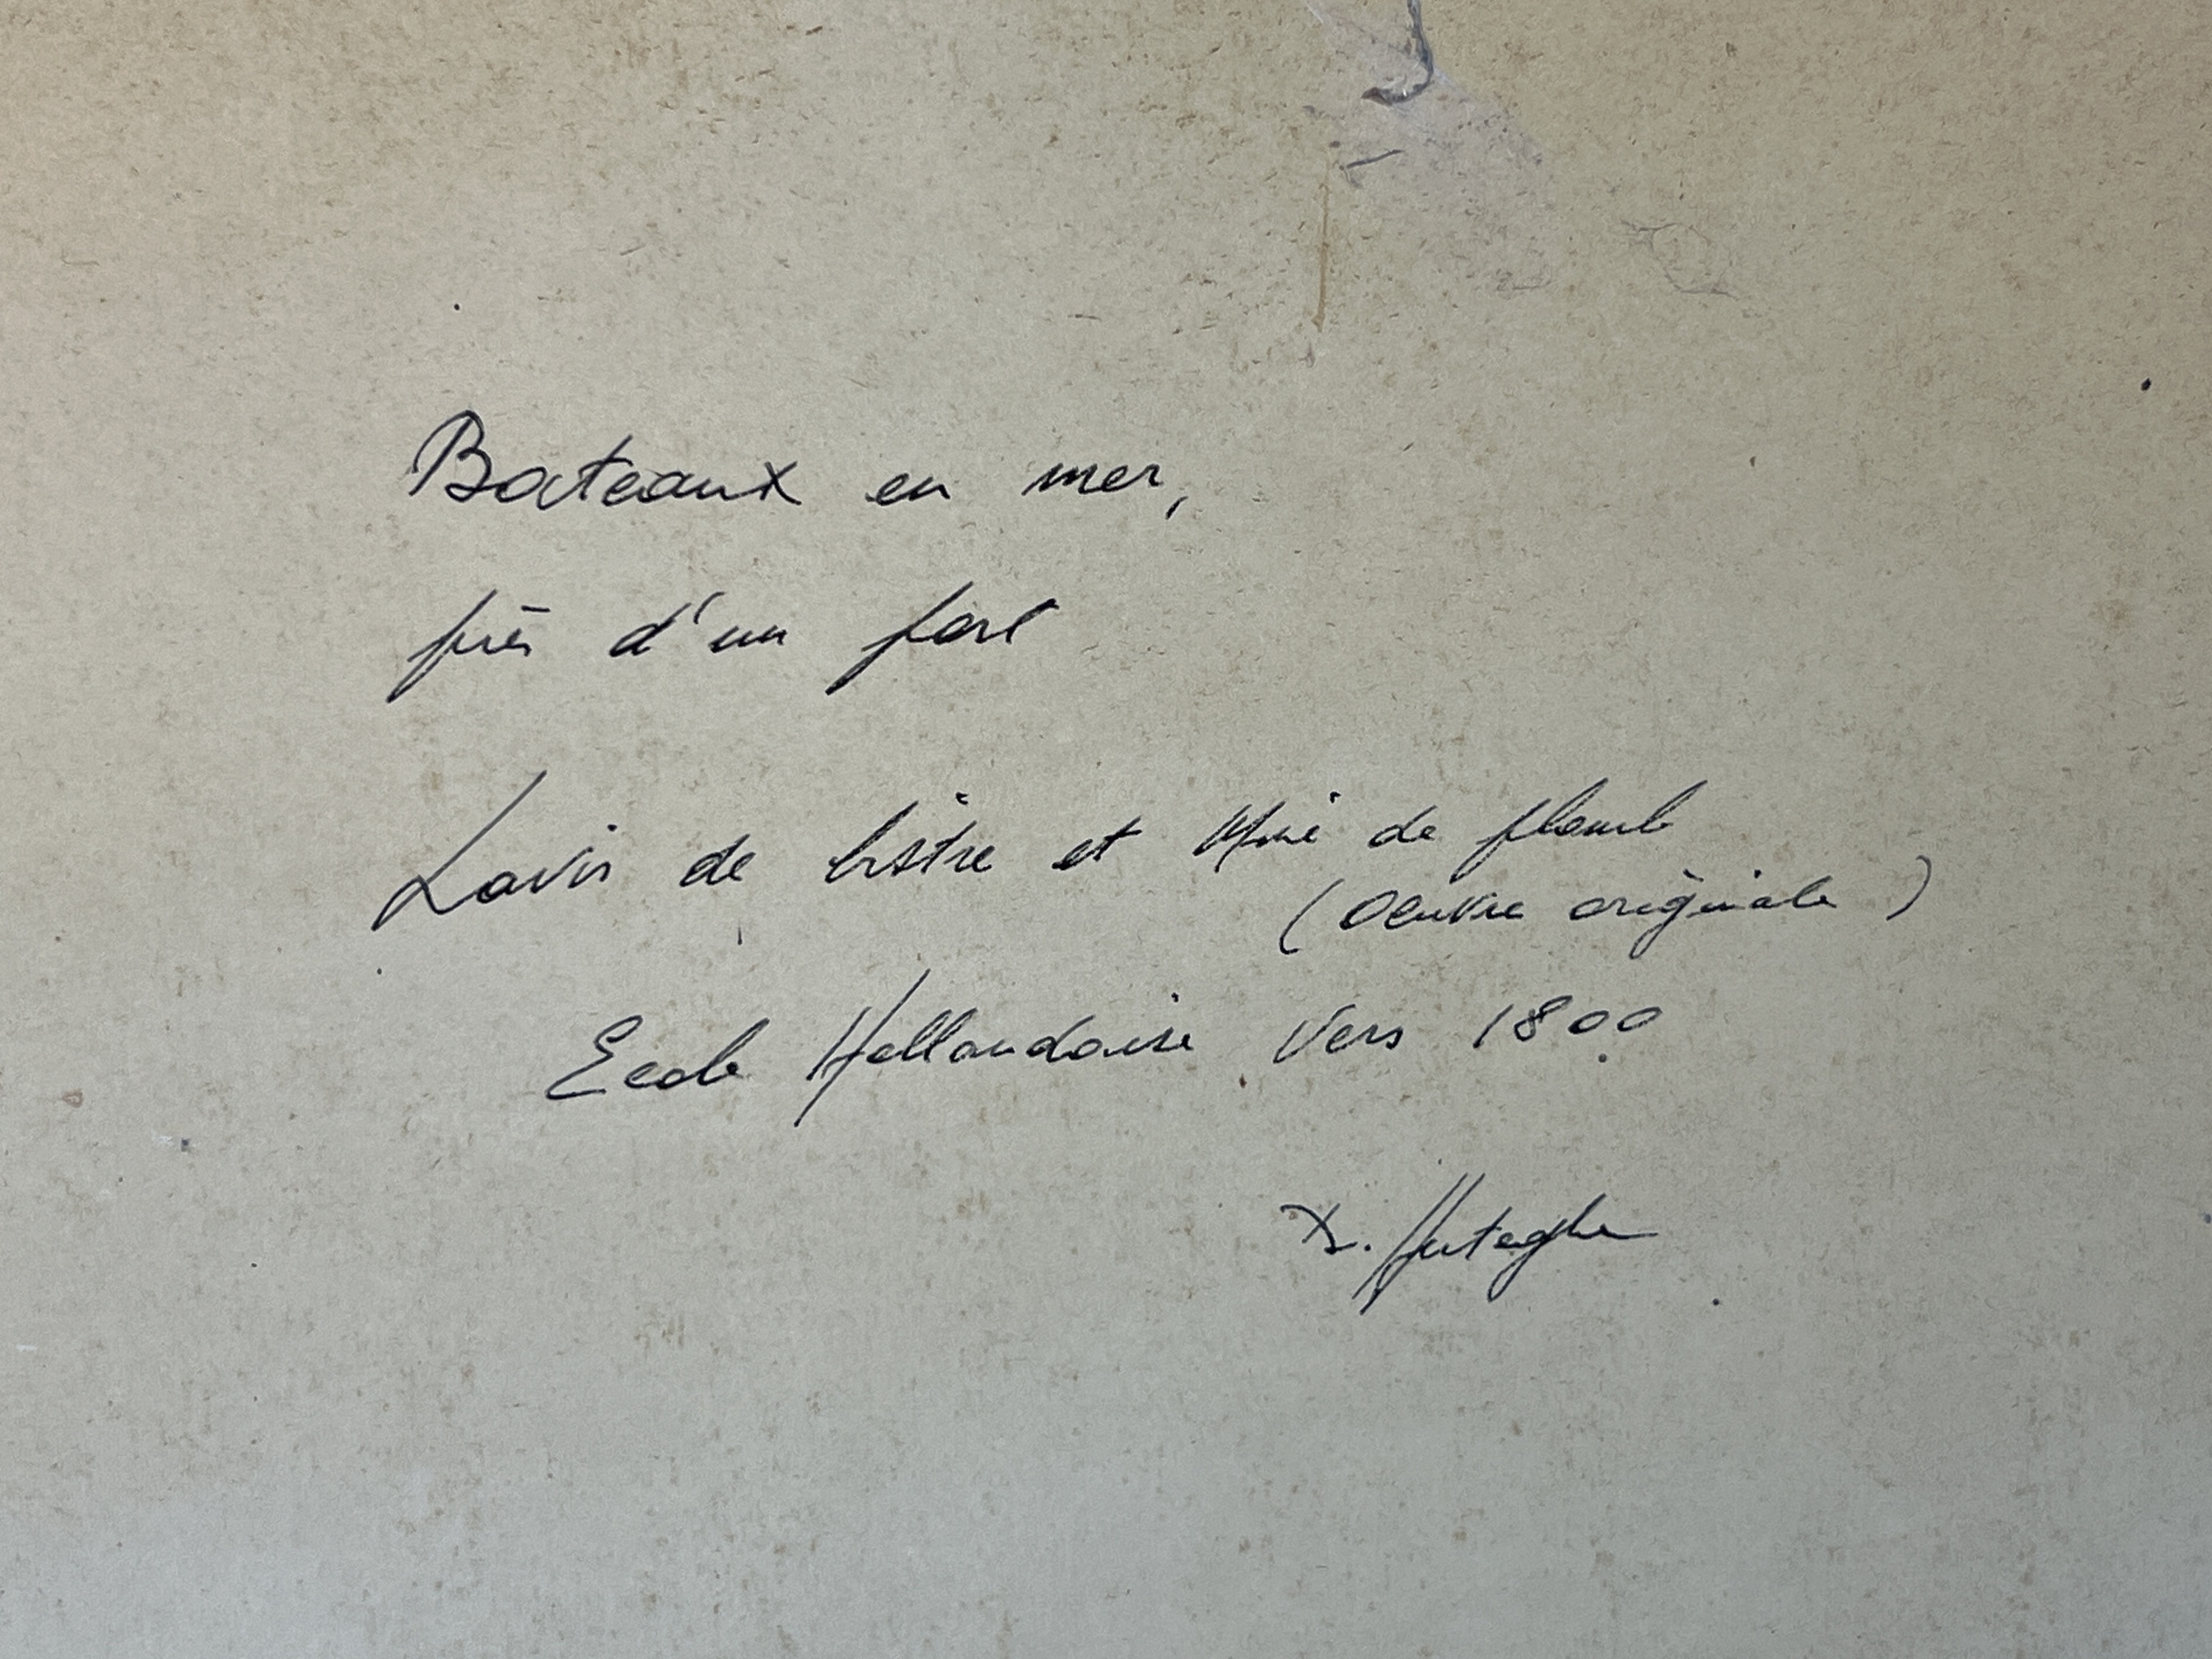 Bateaux en mer,
près d'un fort
Lavis de bistre et Mine de plomb
(Oeuvre originale)
Ecole Hollandaise Vers 1800